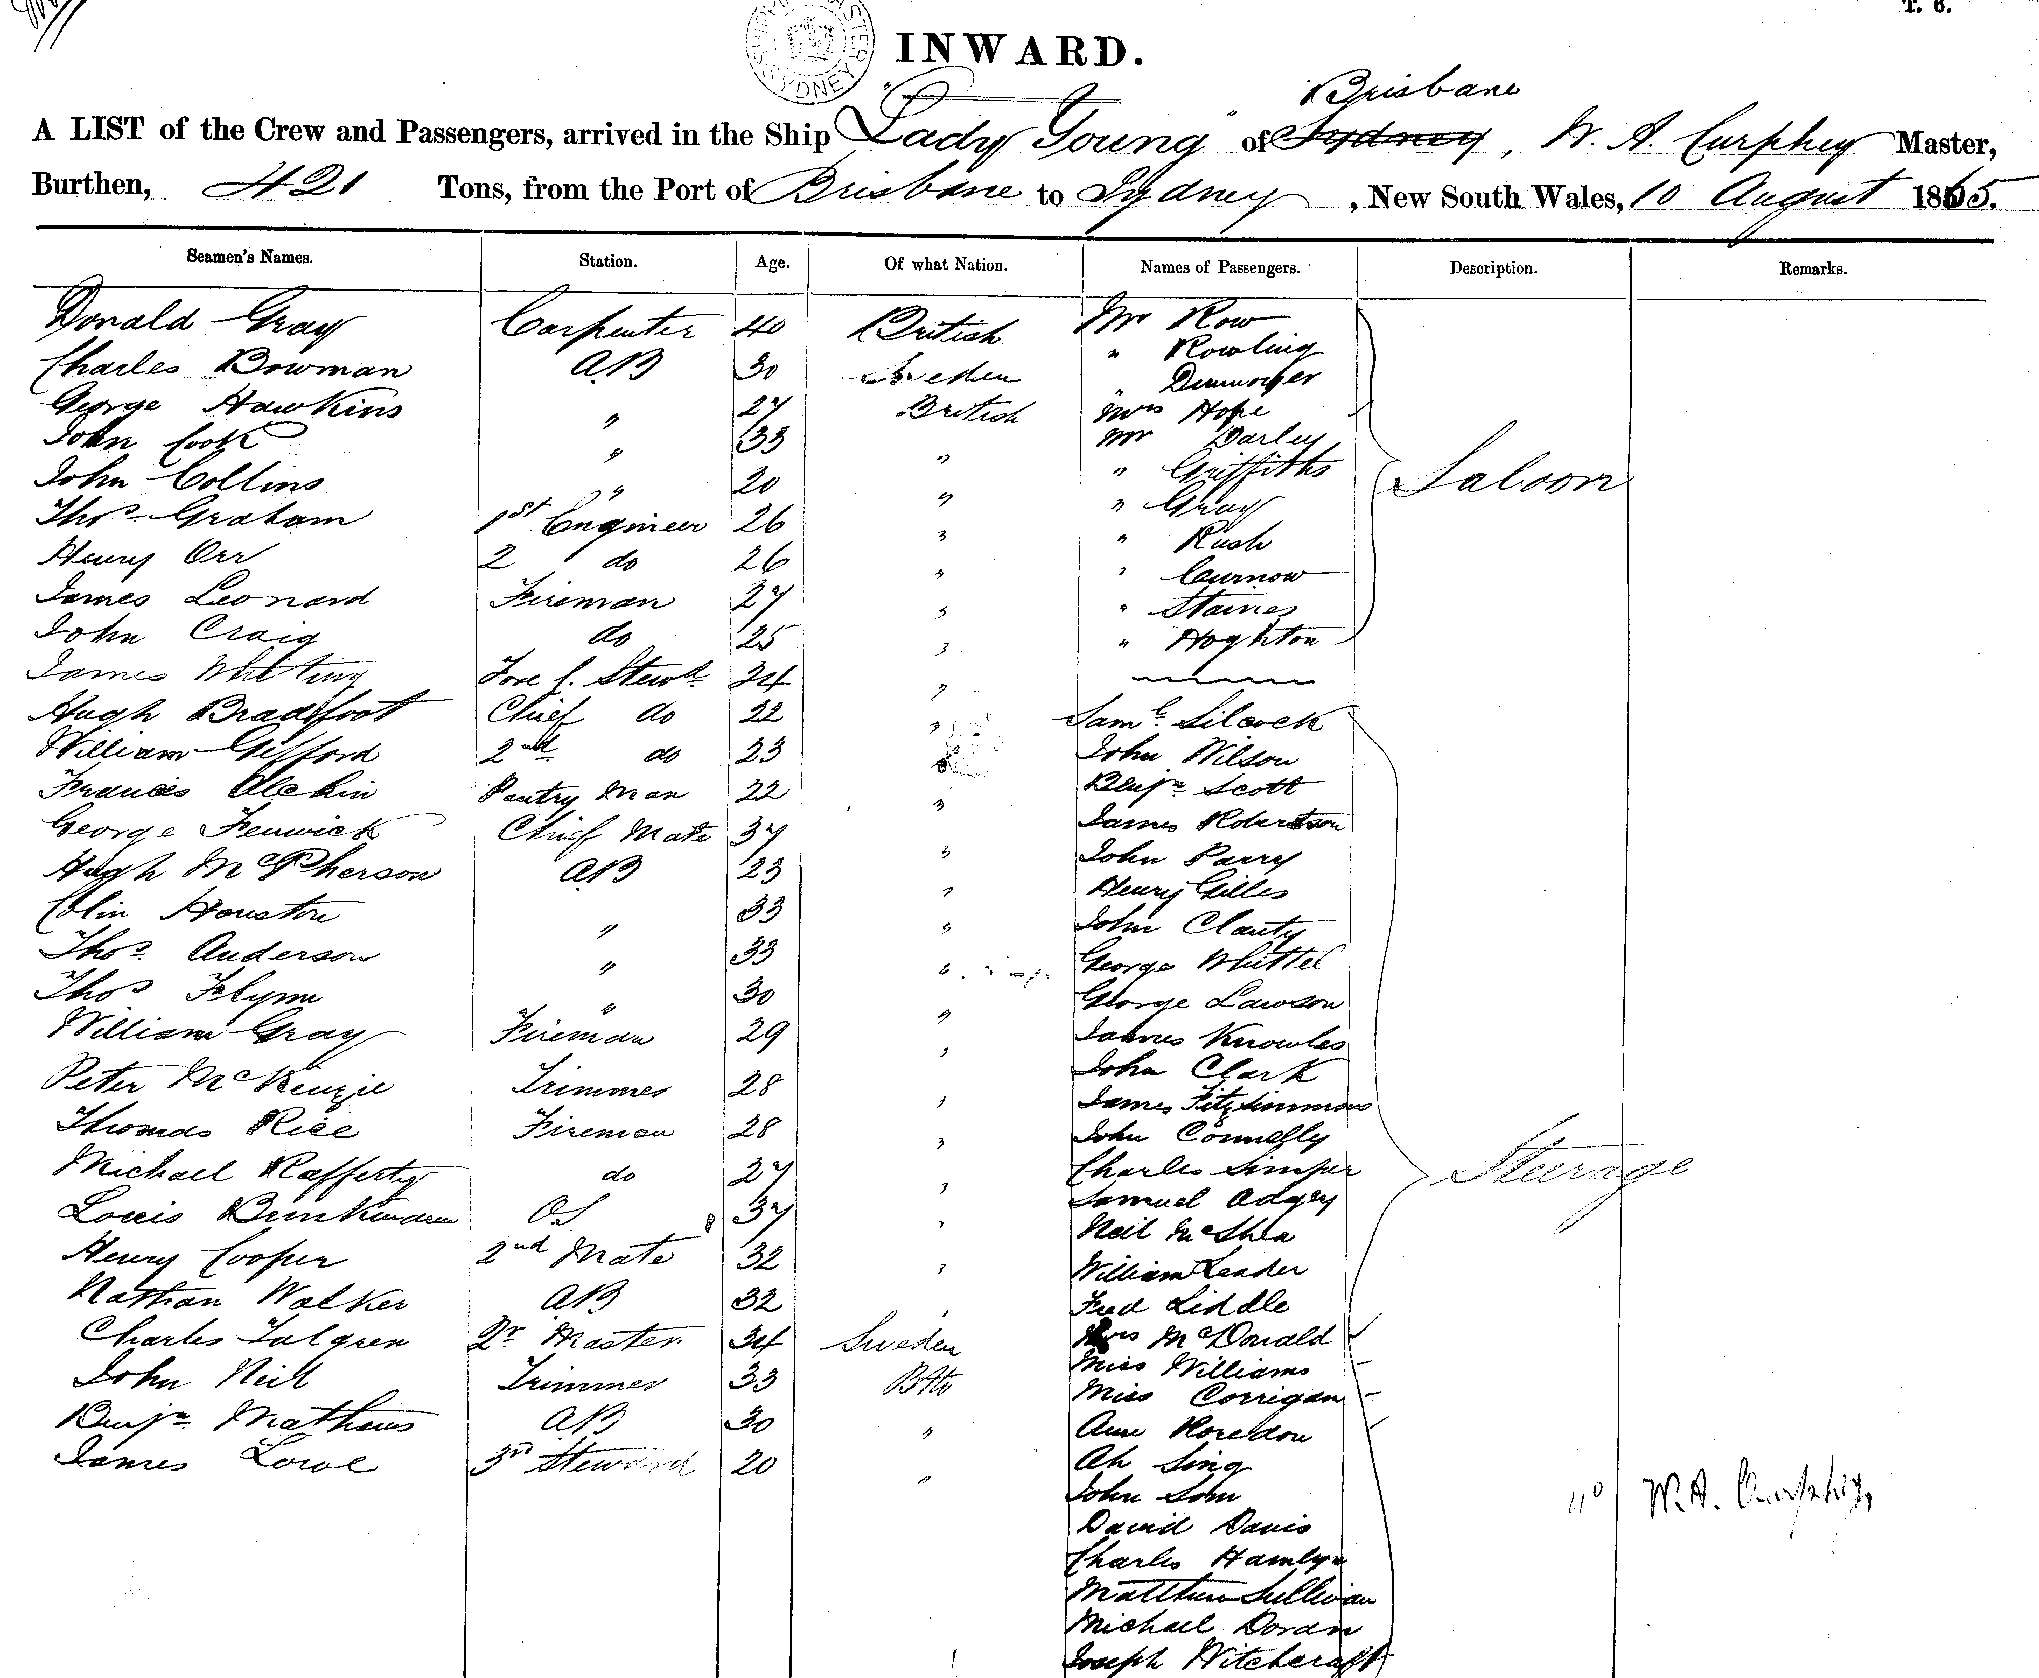 T. 6.
INWARD.
Brisbane
A LIST of the Crew and Passengers, arrived in the Ship "Lady Young" of Sydney, W. A. Curphey Master,
Burthen, 421 Tons, from the Port of Brisbane to Sydney, New South Wales, 10 August 1865.
Seamen's Names. Station. Age. Of what Nation. Names of Passengers. Description. Remarks.
Donald Gray Carpenter 40 British Mr Row
Charles Bowman AB 30 Sweden " Rowling
"
George Hawkins " 27 British Mrs Hope
John Cook " 33 " Mr Darley
John Collins " 20 " " Griffiths Saloon
Thos Graham 1st Engineer 26 " " Gray
Henry Orr 2 do 26 " " Rush
James Leonard Fireman 27 " " Curnow
John Craig do 25 " " Staines
James Whiting Fore C. Stewd 24 " " Hoghton
Hugh Bradfoot Chief do 22 " Saml Silcock
William Gifford 2nd do 23 " John Wilson
Francis Alchin Pantry Man 22 " Benjn Scott
George Fenwick Chief Mate 37 " James Robertson
Hugh McPherson AB 23 " John Parry
Colin Houston " 33 " Henry Gilles
Thos Anderson " 33 " John Clanty
Thos Flynn " 30 " George Whittel
William Gray Fireman 29 " George Lawson
Peter McKenzie Trimmer 28 " James Knowles
Thomas Rice Fireman 28 " John Clark
Michael Rafferty do 27 " James Fitzsimmons
Louis OS 37 " John Connelly
Henry Cooper 2nd Mate 32 " Charles Simper
Nathan Walker AB 32 " Samuel Adgey
Charles Talgren Qr Master 34 Sweden Neil McShea
John Neil Trimmer 33 William Leader
Benjn Mathews AB 30 " Fred Liddle
James Lowe 3rd Steward 20 " Mrs McDonald
Miss Williams
Miss Corrigan
Steerage
Ann
Ah Sing
John Som
David Davis
Charles Hamlyn
Matthew Sullivan
Michael Doran
Joseph Witchcraft
W. A. Curphey